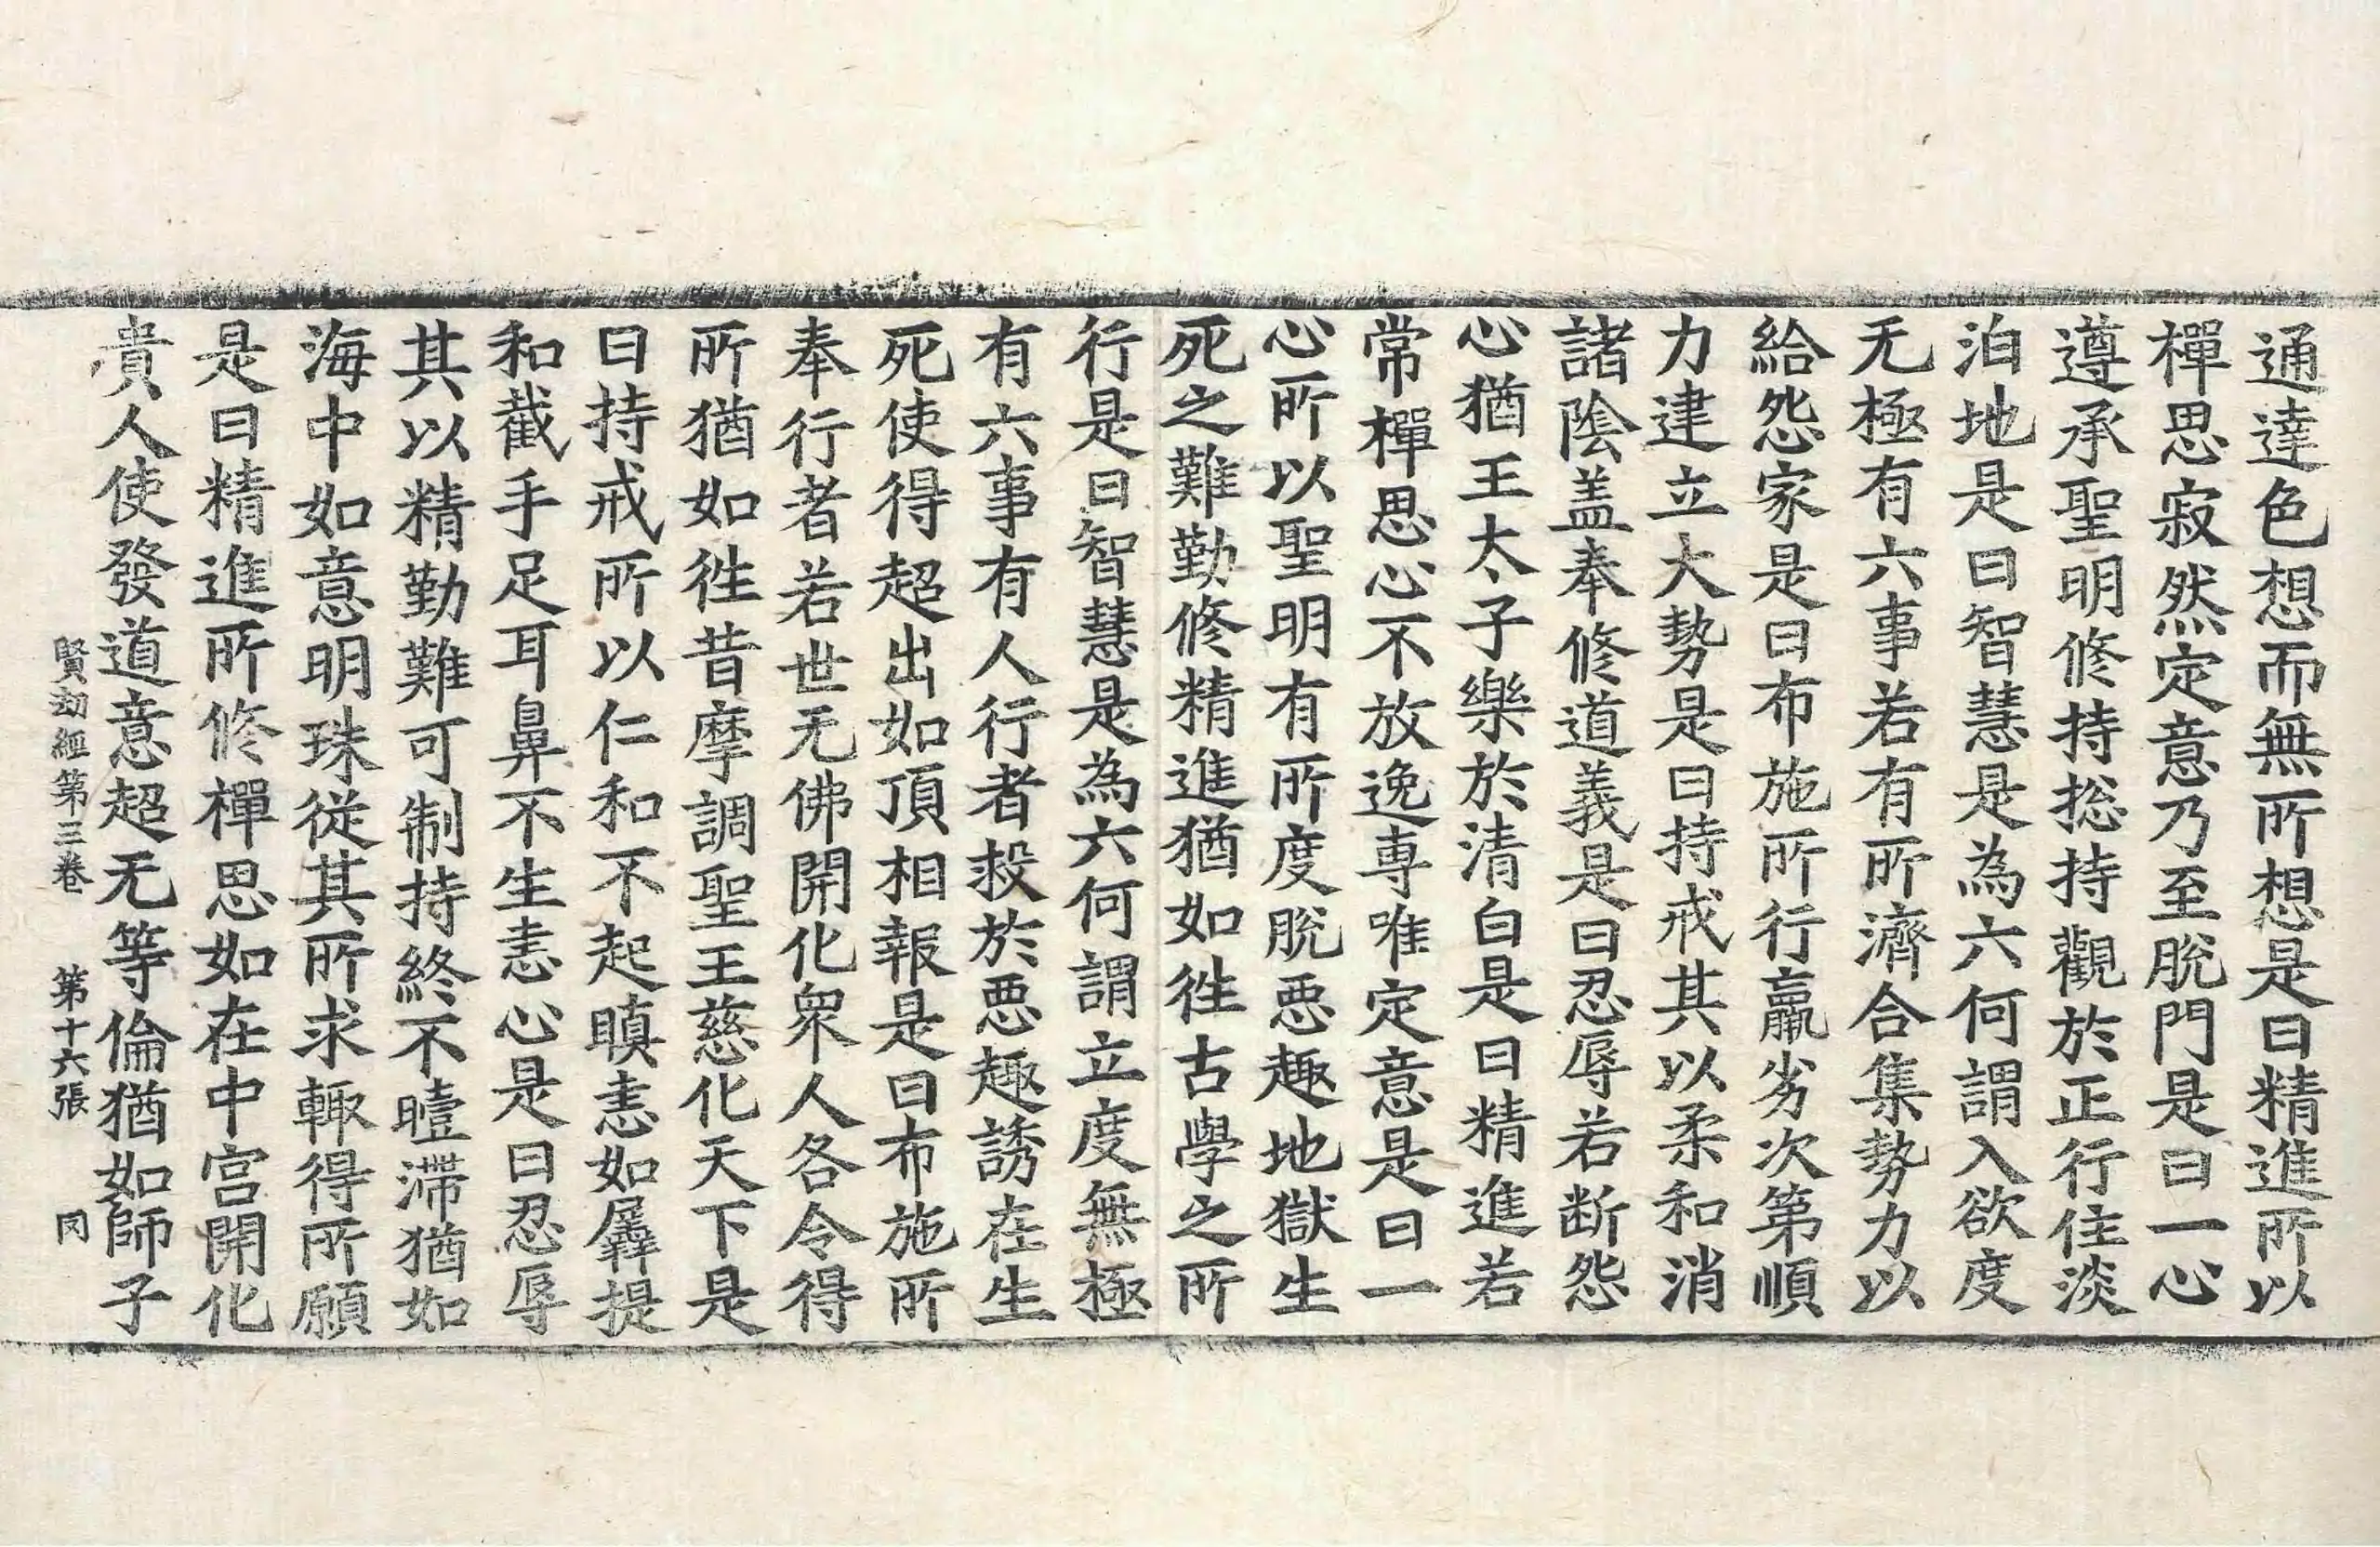 通達色想而無所想是曰精進所以
禪思寂然定意乃至脫門是曰一心
遵承聖明修持捴持觀於正行住淡
泊地是曰智慧是為六何謂入欲度
无極有六事若有所濟合集勢力以
給怨家是曰布施所行羸劣次第順
力建立大勢是曰持戒其以柔和消
諸陰盖奉修道義是曰忍辱若断怨
心猶王太子樂於清白是曰精進若
常禪思心不放逸専唯定意是曰一
心所以聖明有所度脫惡趣地獄生
死之難勤修精進猶如徃古學之所
行是曰智慧是為六何謂立度無極
有六事有人行者投於惡趣誘在生
死使得超出如頂相報是曰布施所
奉行者若世无佛開化衆人各令得
所猶如徃昔摩調聖王慈化天下是
曰持戒所以仁和不起瞋恚如羼提
和截手足耳鼻不生恚心是曰忍辱
其以精勤難可制持終不曀滯猶如
海中如意明珠從其所求輙得所願
是曰精進所修禪思如在中宮開化
貴人使發道意超无等倫猶如師子
賢劫經第三卷　第十六張　罔